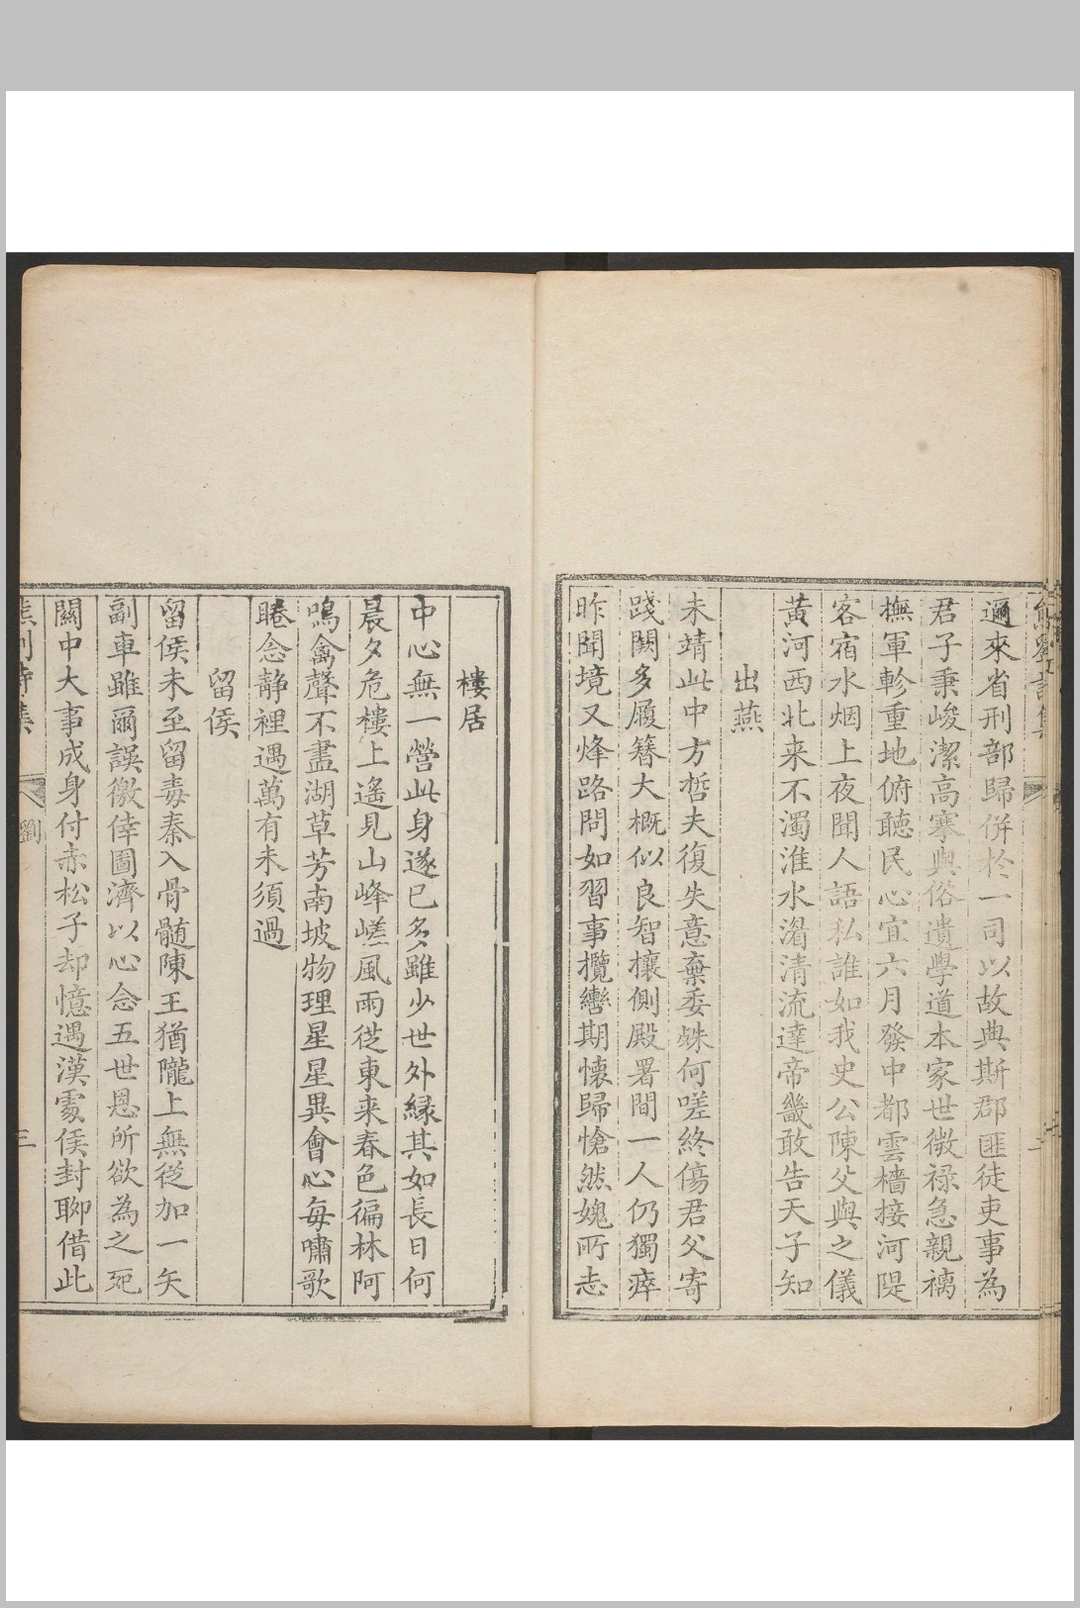 邇來省刑部歸併於一司以故典斯郡匪徒吏事為
君子秉峻潔高搴與俗遺學道本家世微禄急親襦
撫軍軫重地俯聽民心宜六月發中都雲檣接河隄
客宿水烟上夜聞人語私誰如我史公陳父與之儀
黃河西北来不濁淮水㵩清流達帝畿敢告天子知
出燕
未靖此中方哲夫復失意棄委姝何嗟終傷君父寄
踐闕多履簪大概似良智攘側殿署間一人仍獨瘁
昨聞境又烽路問如習事攬轡期懷歸愴然媿所志
樓居
中心無一營此身遂已多雖少世外緣其如長日何
晨夕危樓上遙見山峰嵯風雨從東来春色徧林阿
鳴禽聲不盡湖草芳南坡物理星星異會心每嘯歌
睠念静裡過萬有未須過
留侯
留侯未至留毒秦入骨髄陳王猶隴上無從加一矢
副車雖爾誤徼倖圖濟以心念五世恩所欲為之死
關中大事成身付赤松子却憶遇漢䖏侯封聊借此
劉
三